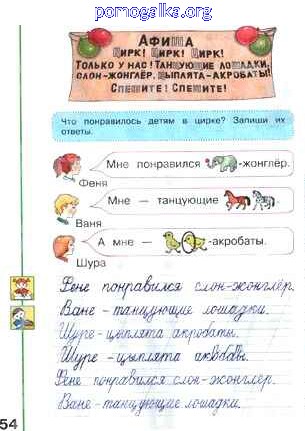 pomogalka.org
АФИША
ЦИРК! ЦИРК! ЦИРК!
ТОЛЬКО У НАС! ТАНЦУЮЩИЕ ЛОШАДКИ,
СЛОН-ЖОНГЛЁР, ЦЫПЛЯТА-АКРОБАТЫ!
СПЕШИТЕ! СПЕШИТЕ!
Что понравилось детям в цирке? Запиши их
ответы.
Мне понравился -жонглёр.
Феня
Мне — танцующие .
Ваня
А мне — -акробаты.
Шура
Фене понравился слон-жонглёр.
Ване - танцующие лошадки.
Шуре - цыплята акробаты.
Шуре - цыплята
Фене понравился слон-жонглёр.
Ване - танцующие лошадки.
54